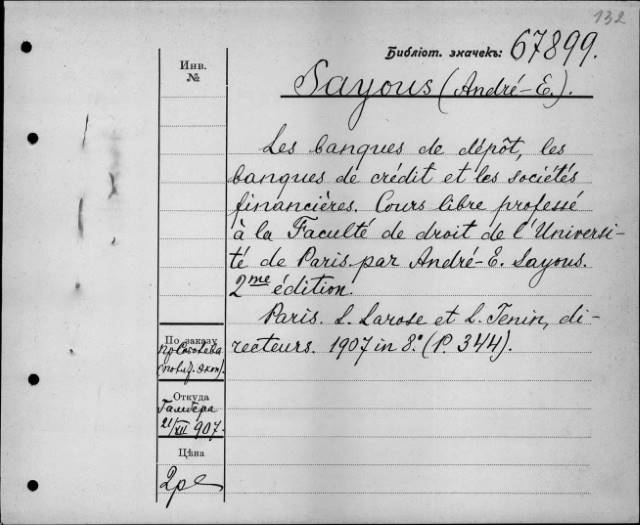 132
Библіот. значекъ: 67899.
Инв.
№
Sayous (André-E.).
Les banques de dépôt, les
banques de crédit et les sociétés
financières. Cours libre professé
à la Faculté de droit de l'Universi-
té de Paris par André-E. Sayous.
2me édition.
Paris. L. Larose et L. Tenin, di-
recteurs. 1907 in 8.° (P. 344).
По заказу
Откуда
21/XII 907.
Цѣна